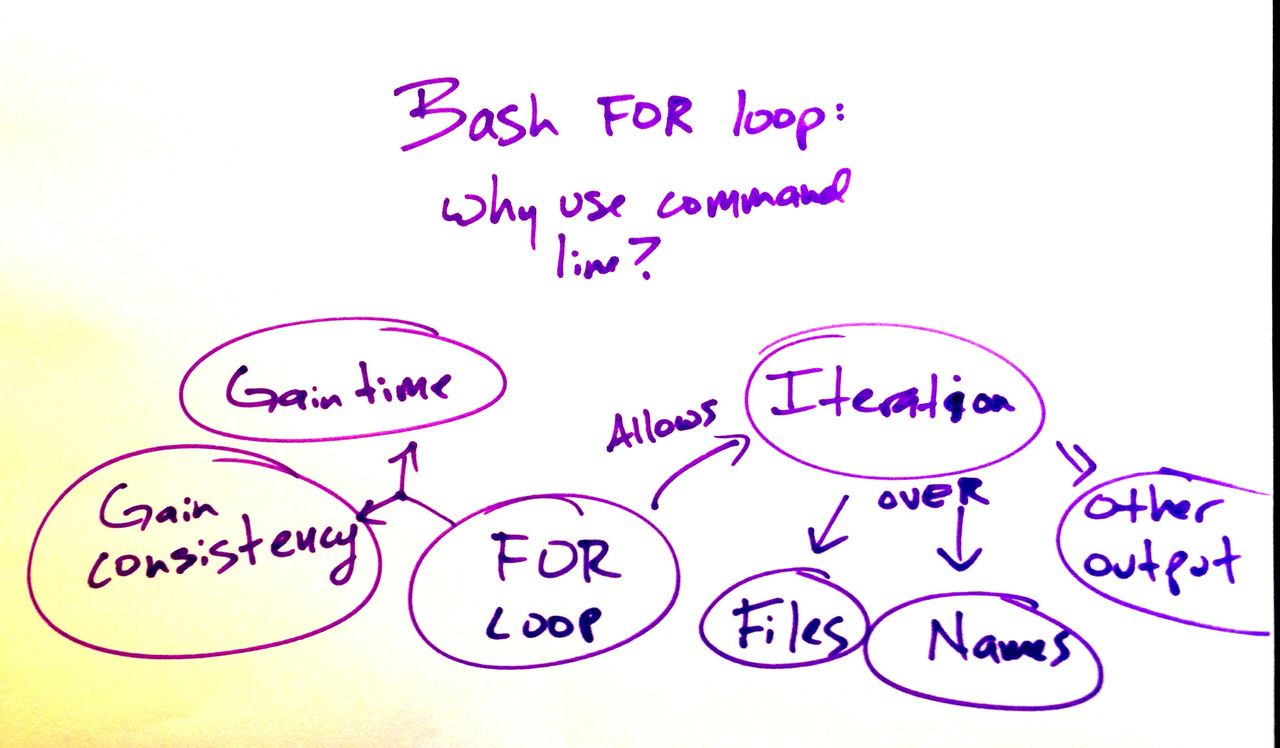 Bash FOR loop:
why use command
line?
Gain time
Gain
consistency
FOR
LOOP
Allows
Iteration
OVER
Files
Names
other
output